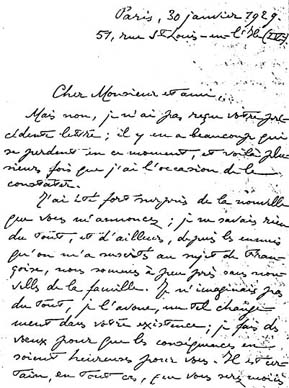 Paris, 30 janvier 1929.
51, rue St Louis-en-l'Ile (IVe)
Cher Monsieur et ami,
Mais non, je n'ai pas reçu votre pré-
cédente lettre ; il y en a beaucoup qui
se perdent en ce moment, et voilà plu-
sieurs fois que j'ai l'occasion de le
constater.
J'ai été fort surpris de la nouvelle
que vous m'annoncez ; je ne savais rien
du tout, et d'ailleurs, depuis les ennuis
qu'on m'a suscités au sujet de Fran-
çoise, nous sommes à peu près sans nou-
velles de la famille. Je n'imaginais pas
du tout, je l'avoue, un tel change-
ment dans votre existence ; je fais des
vœux pour que les conséquences en
soient heureuses pour vous. Il est cer-
tain, en tout cas, que vous serez moins